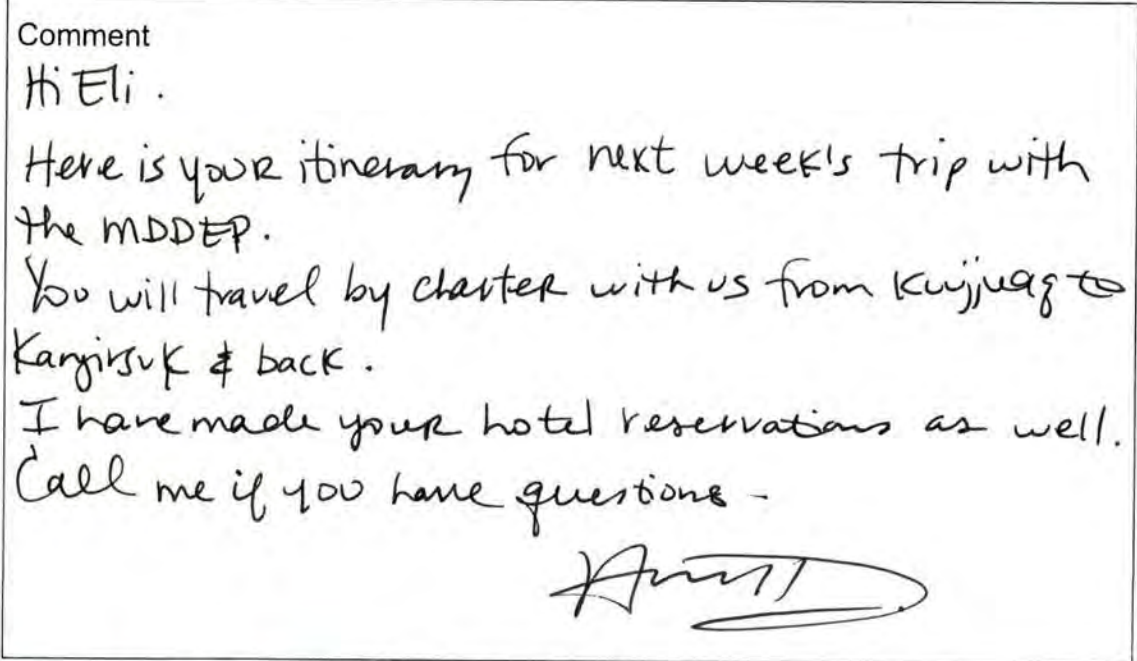 Comment
Hi Eli.
Here is your itinerary for next week's trip with
the MDDEP.
You will travel by charter with us from Kuujjuaq to
Kangirsuk & back.
I have made your hotel reservations as well.
Call me if you have questions -